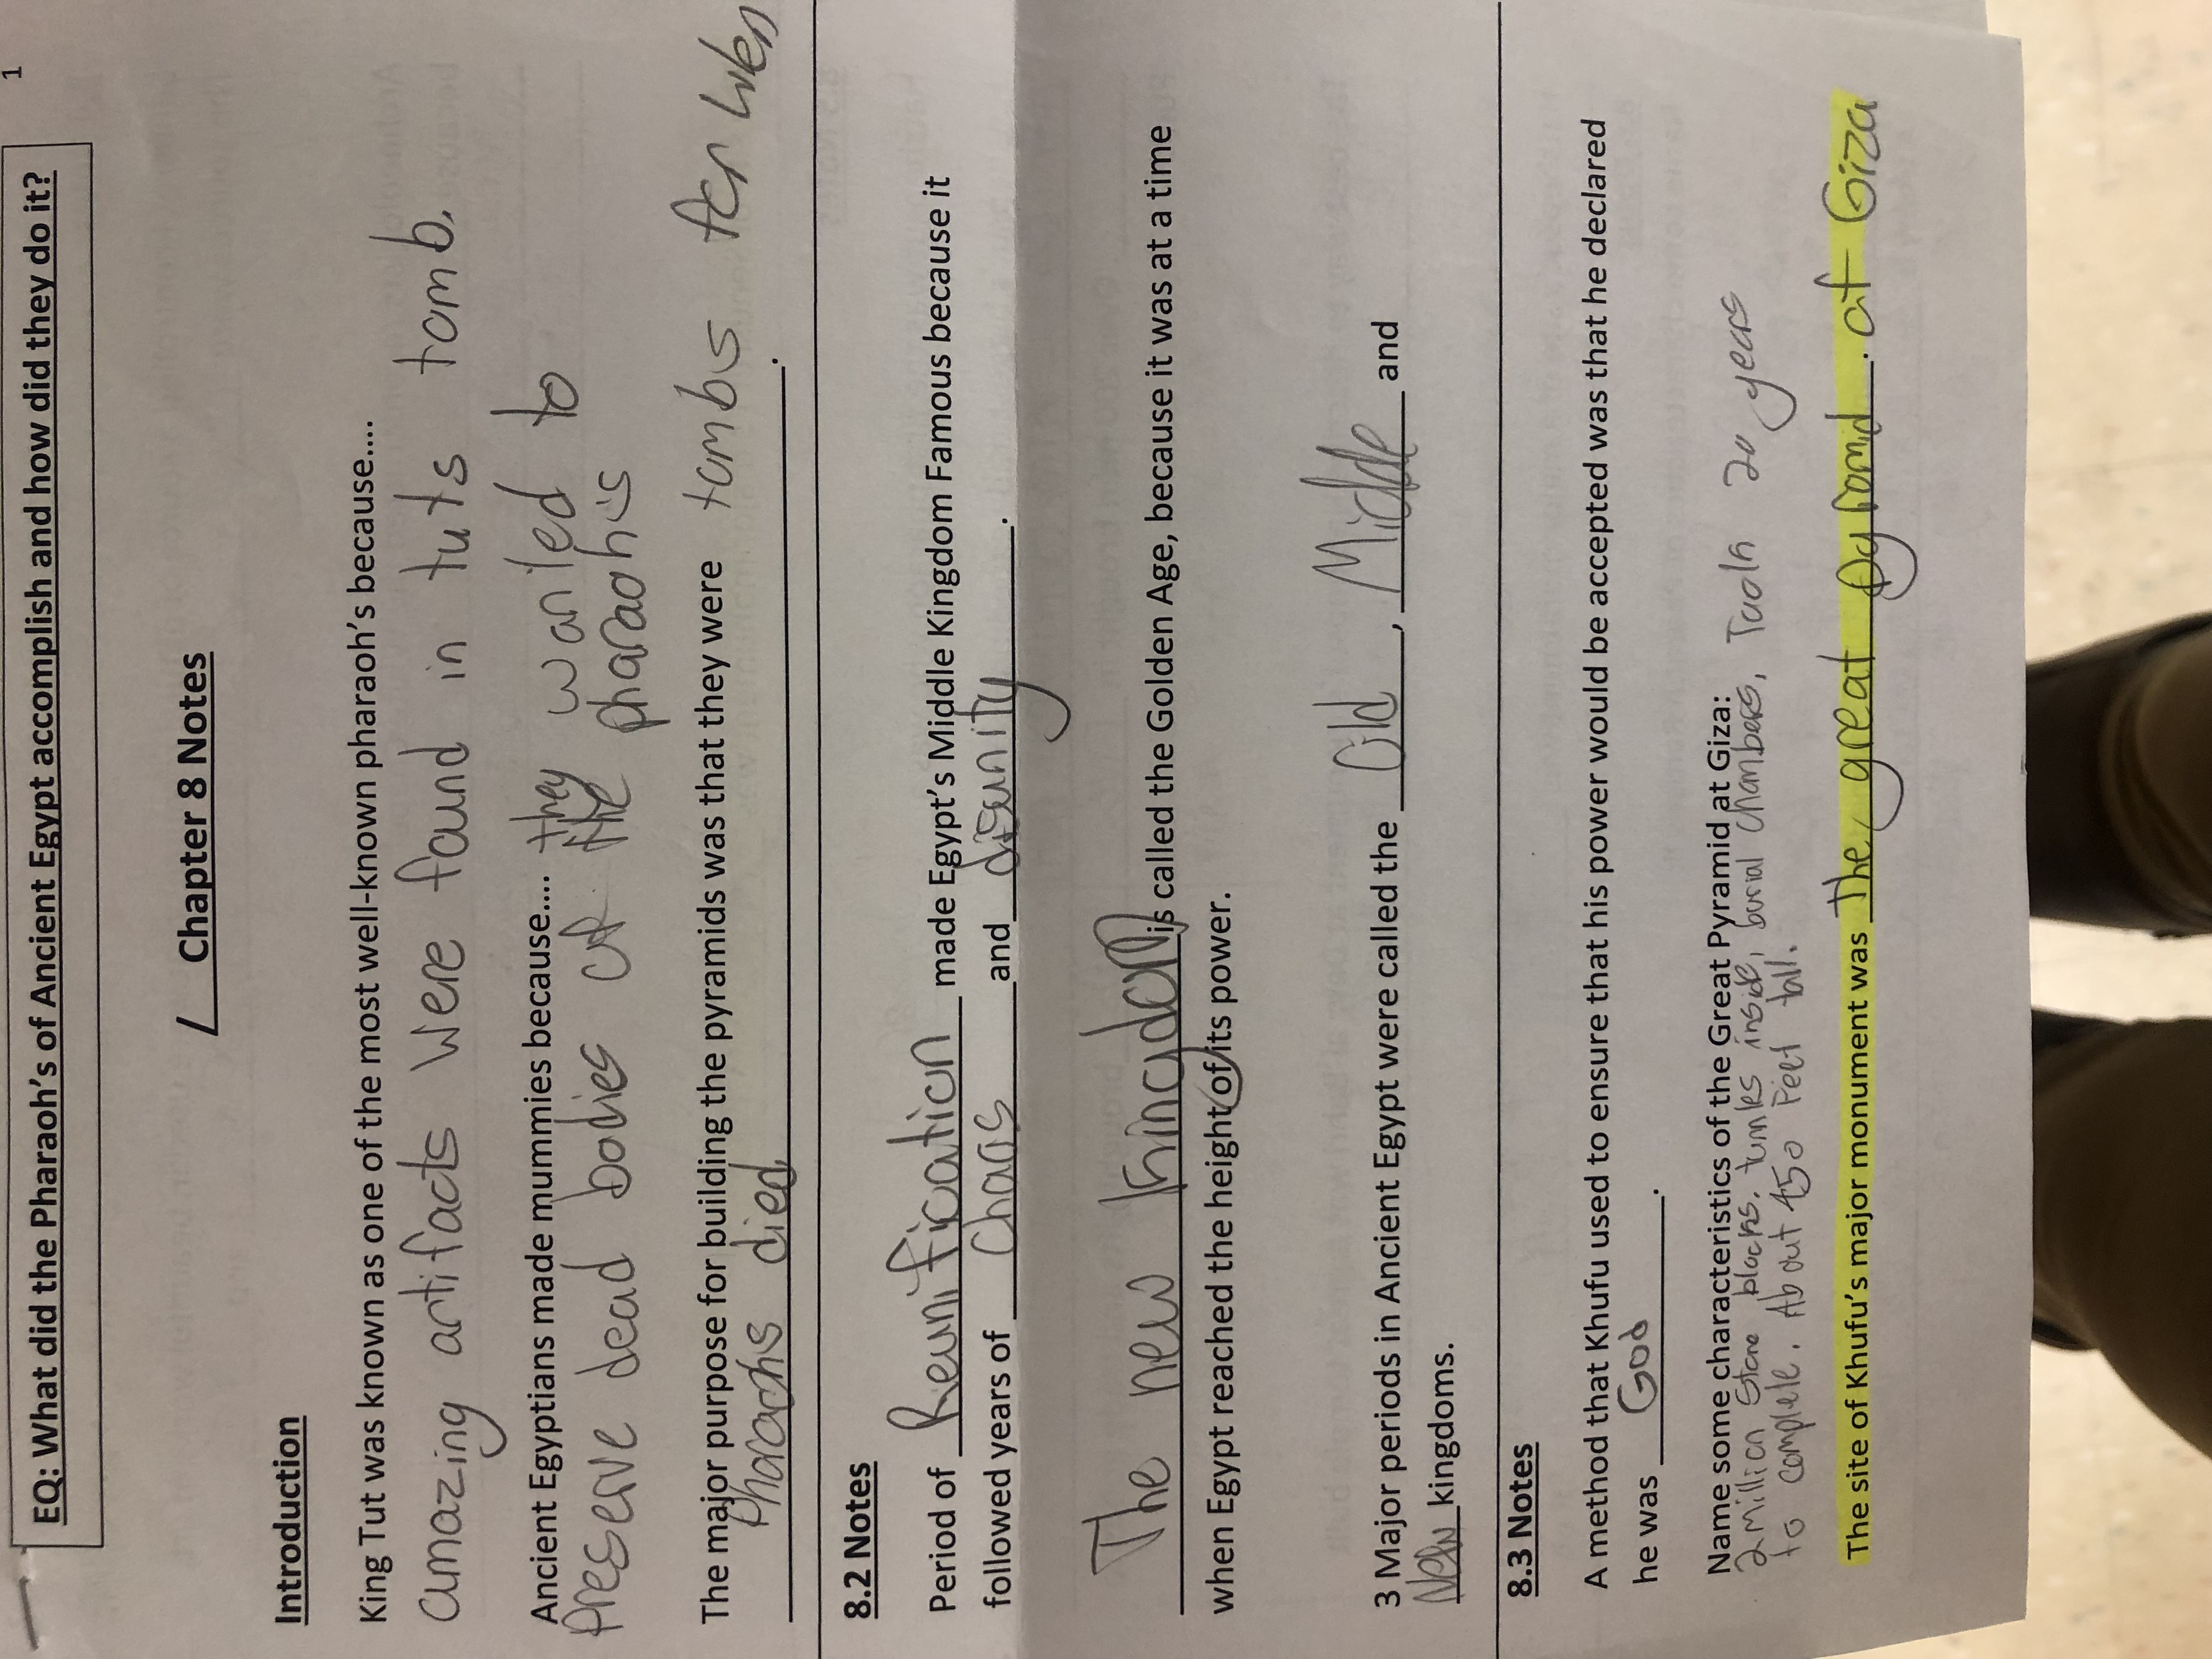 1
EQ: What did the Pharaoh's of Ancient Egypt accomplish and how did they do it?
Chapter 8 Notes
Introduction
King Tut was known as one of the most well-known pharaoh's because....
amazing artifacts were found in tuts tomb.
Ancient Egyptians made mummies because.... they wanted to
preserve dead bodies of the pharaoh's
The major purpose for building the pyramids was that they were tombs for when
Pharaohs died.
8.2 Notes
Period of Reunification made Egypt's Middle Kingdom Famous because it
followed years of Chaos and disunity.
The new kingdom is called the Golden Age, because it was at a time
when Egypt reached the height of its power.
3 Major periods in Ancient Egypt were called the Old, Middle and
New kingdoms.
8.3 Notes
A method that Khufu used to ensure that his power would be accepted was that he declared
he was God.
Name some characteristics of the Great Pyramid at Giza:
2 million stone blocks, inside, burial chambers, 20 years
to complete. About 450 Feet tall.
The site of Khufu's major monument was The great pyramid. at Giza